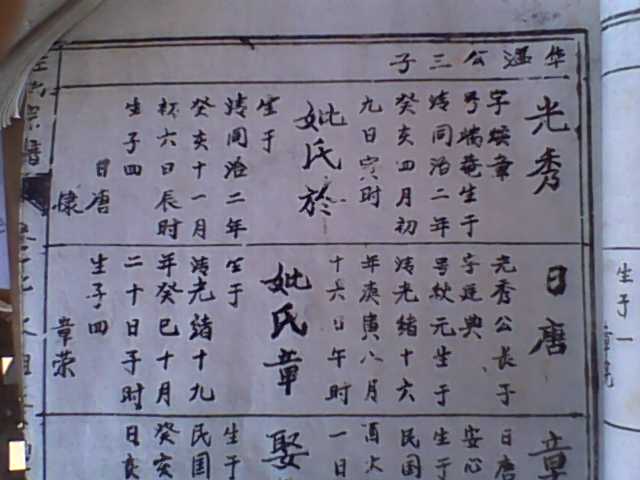 华温公三子
光秀
字缤章
号端菴生于
清同治二年
癸亥四月初
九日寅时
妣氏於
生于
清同治二年
癸亥十一月
初六日辰时
生子四
日唐
棣
日唐
光秀公长子
字廷典
号纹元生于
清光绪十六
年庚寅八月
十六日午时
妣氏章
生于
清光绪十九
年癸巳十月
二十日子时
生子四
章荣
章
日唐
安心
生于
民国
酉
一日
娶
生于
民国
癸亥
日亥
生于一